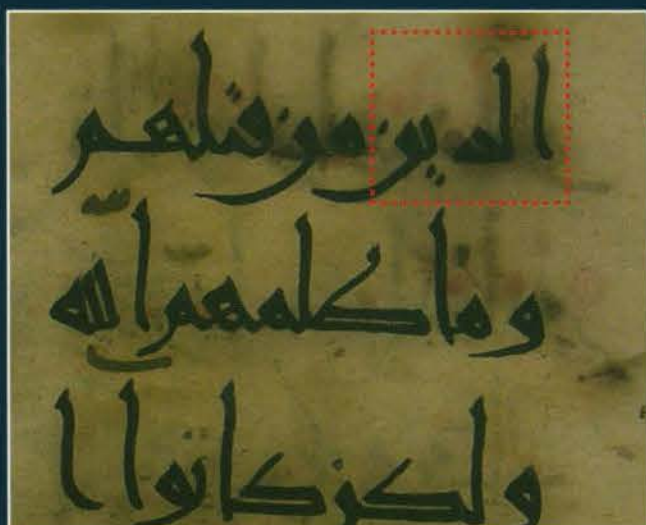 الذين من قبلهم
وما ظلمهم الله
ولكن كانوا ا